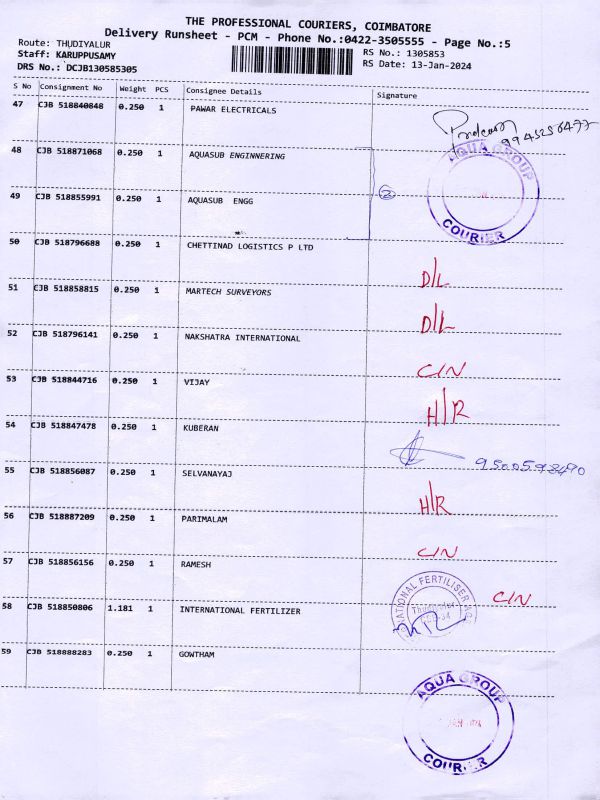 THE PROFESSIONAL COURIERS, COIMBATORE
Delivery Runsheet - PCM - Phone No.:0422-3505555 - Page No.:5
Route: THUDIYALUR
Staff: KARUPPUSAMY
DRS No.: DCJB130585305
RS No.: 1305853
RS Date: 13-Jan-2024
S No Consignment No Weight PCS Consignee Details Signature
47 CJB 518840848 0.250 1 PAWAR ELECTRICALS
48 CJB 518871068 0.250 1 AQUASUB ENGINNERING
AQUA GROUP
COURIER
49 CJB 518855991 0.250 1 AQUASUB ENGG
②
50 CJB 518796688 0.250 1 CHETTINAD LOGISTICS P LTD
D/L
51 CJB 518858815 0.250 1 MARTECH SURVEYORS
D/L
52 CJB 518796141 0.250 1 NAKSHATRA INTERNATIONAL
C/N
53 CJB 518844716 0.250 1 VIJAY
H/R
54 CJB 518847478 0.250 1 KUBERAN
55 CJB 518856087 0.250 1 SELVANAYAJ
H/R
56 CJB 518887209 0.250 1 PARIMALAM
C/N
57 CJB 518856156 0.250 1 RAMESH
C/N
58 CJB 518850806 1.181 1 INTERNATIONAL FERTILIZER
59 CJB 518888283 0.250 1 GOWTHAM
AQUA GROUP
COURIER